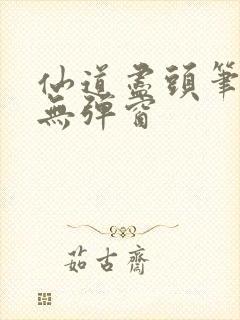 仙道盡頭筆
無彈窗
茹古齋